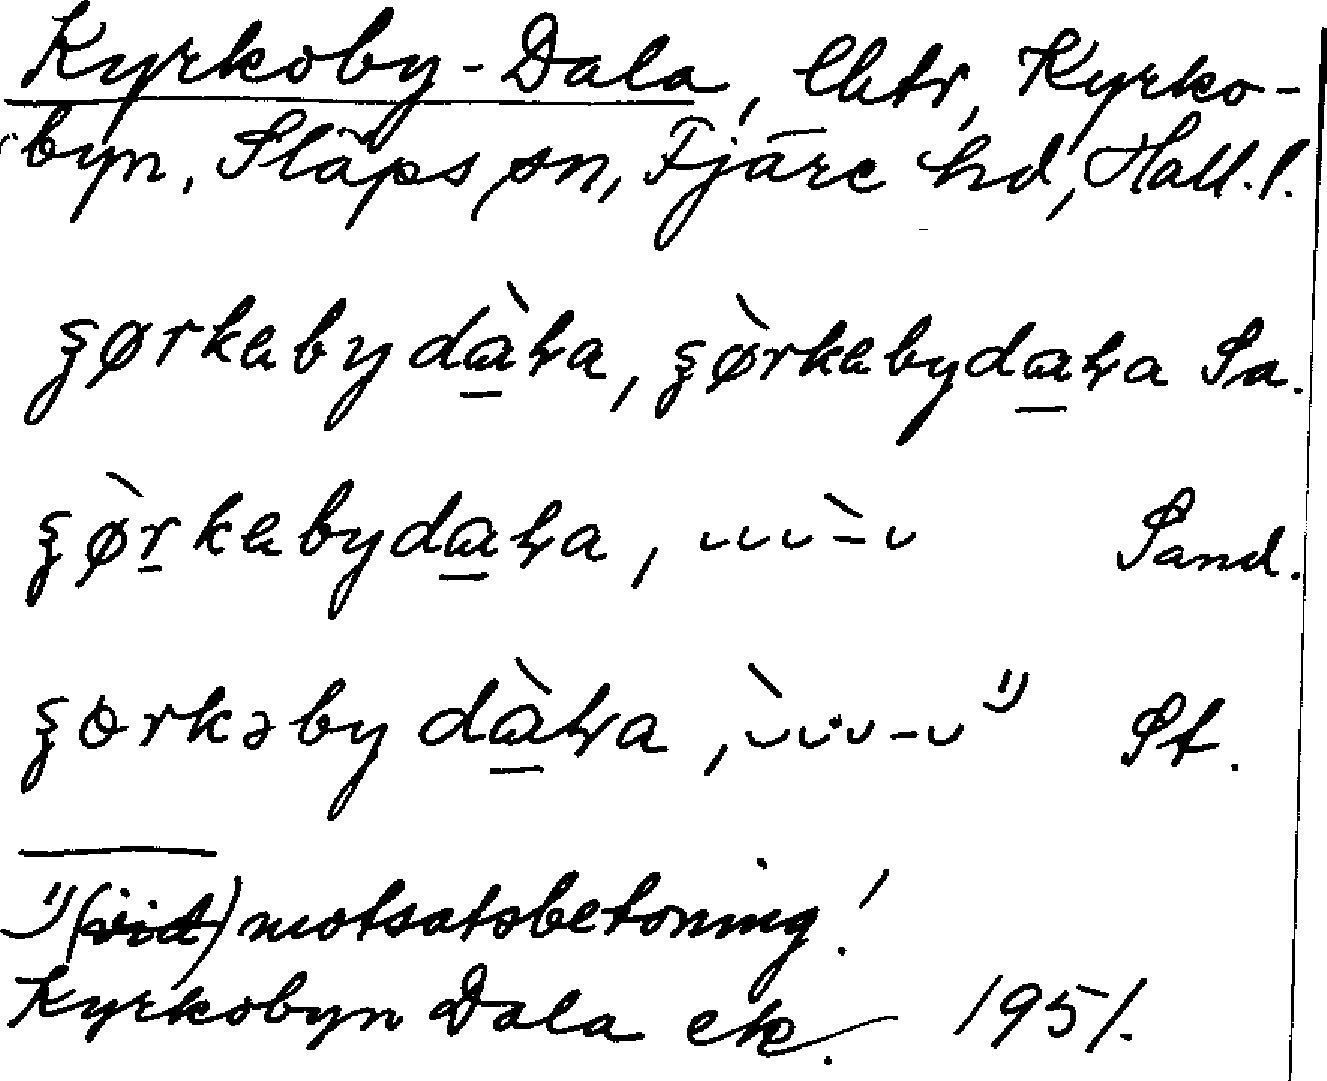 Kyrkoby-Dala, lhtr, Kyrko-
byn, Släps sn, Fjäre hd, Hall. l.
ʂørkabydàɽa, ʂø̀rkabydaɽa Sa.
ʂø̀rkabydaɽa, ᴗᴗᴗ-̀ᴗ Sand.
ʂɵrkəbydàɽa, ᴗ̀ᴗᴗ-ᴗ ¹⁾ St.
¹⁾ (vid) motsatsbetoning!
Kyrkobyn Dala ek. 1951.